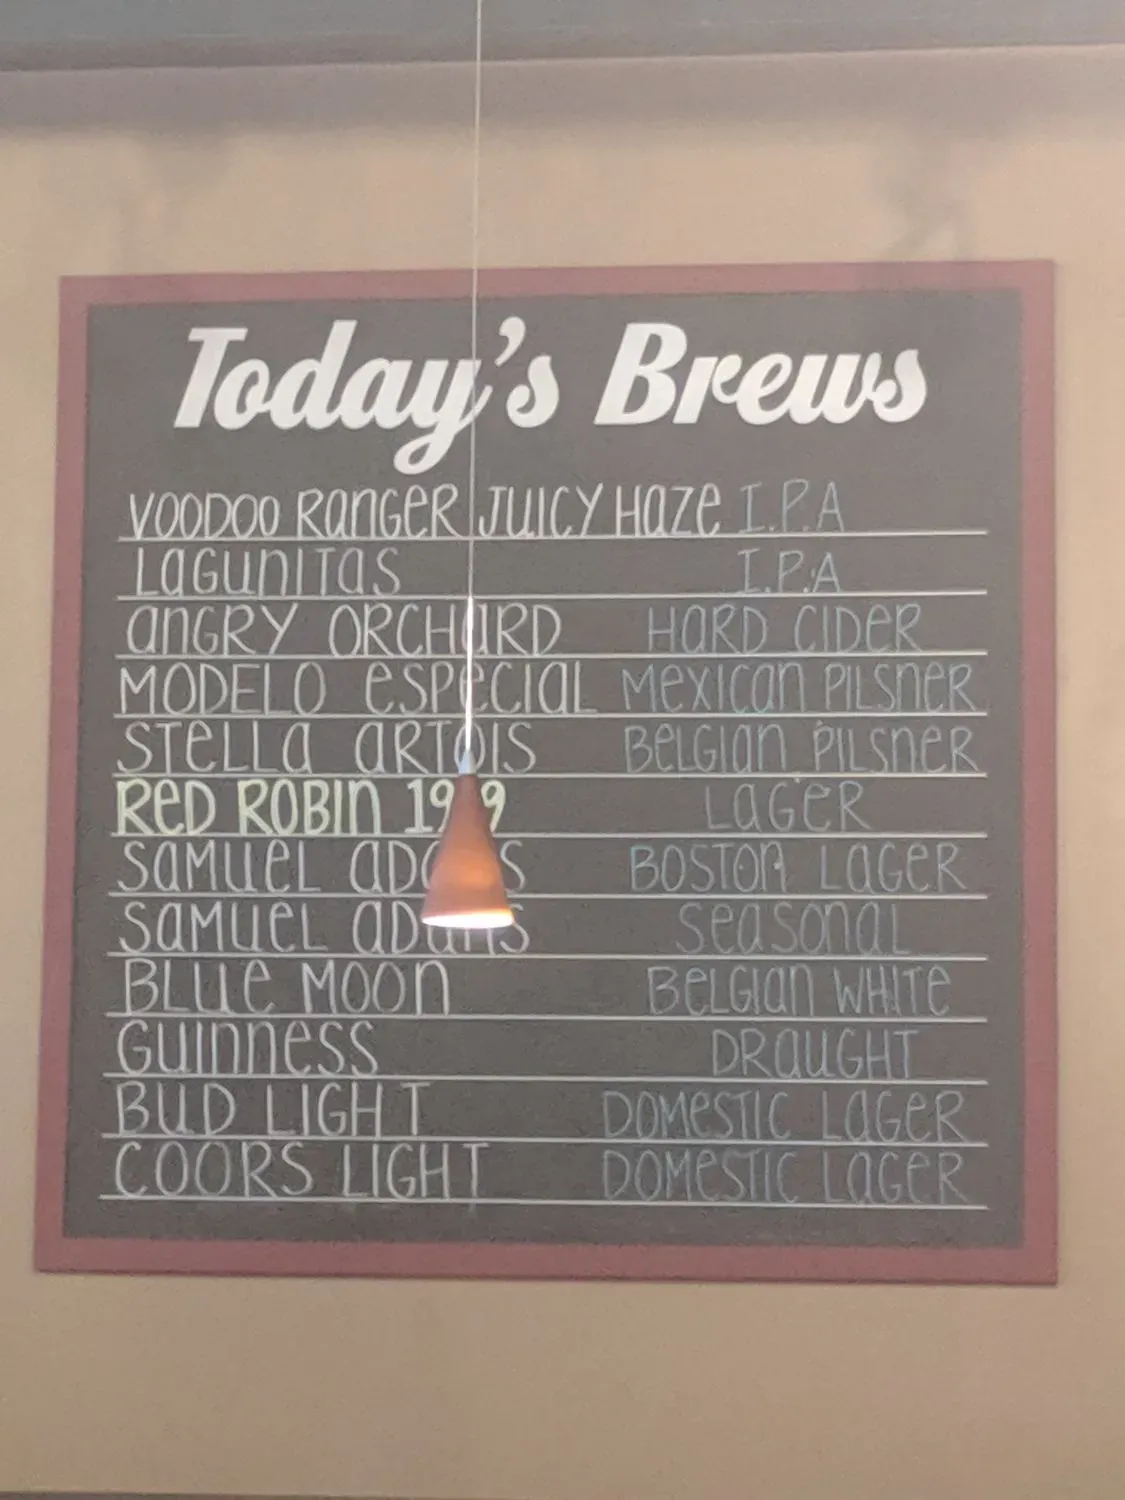 Today's Brews
VOODOO RANGER JUICY HAZE I.P.A
LAGUNITAS I.P.A
ANGRY ORCHARD HARD CIDER
MODELO ESPECIAL MEXICAN PILSNER
STELLA ARTOIS BELGIAN PILSNER
RED ROBIN LAGER
SAMUEL ADAMS BOSTON LAGER
SAMUEL ADAMS SEASONAL
BLUE MOON BELGIAN WHITE
GUINNESS DRAUGHT
BUD LIGHT DOMESTIC LAGER
COORS LIGHT DOMESTIC LAGER